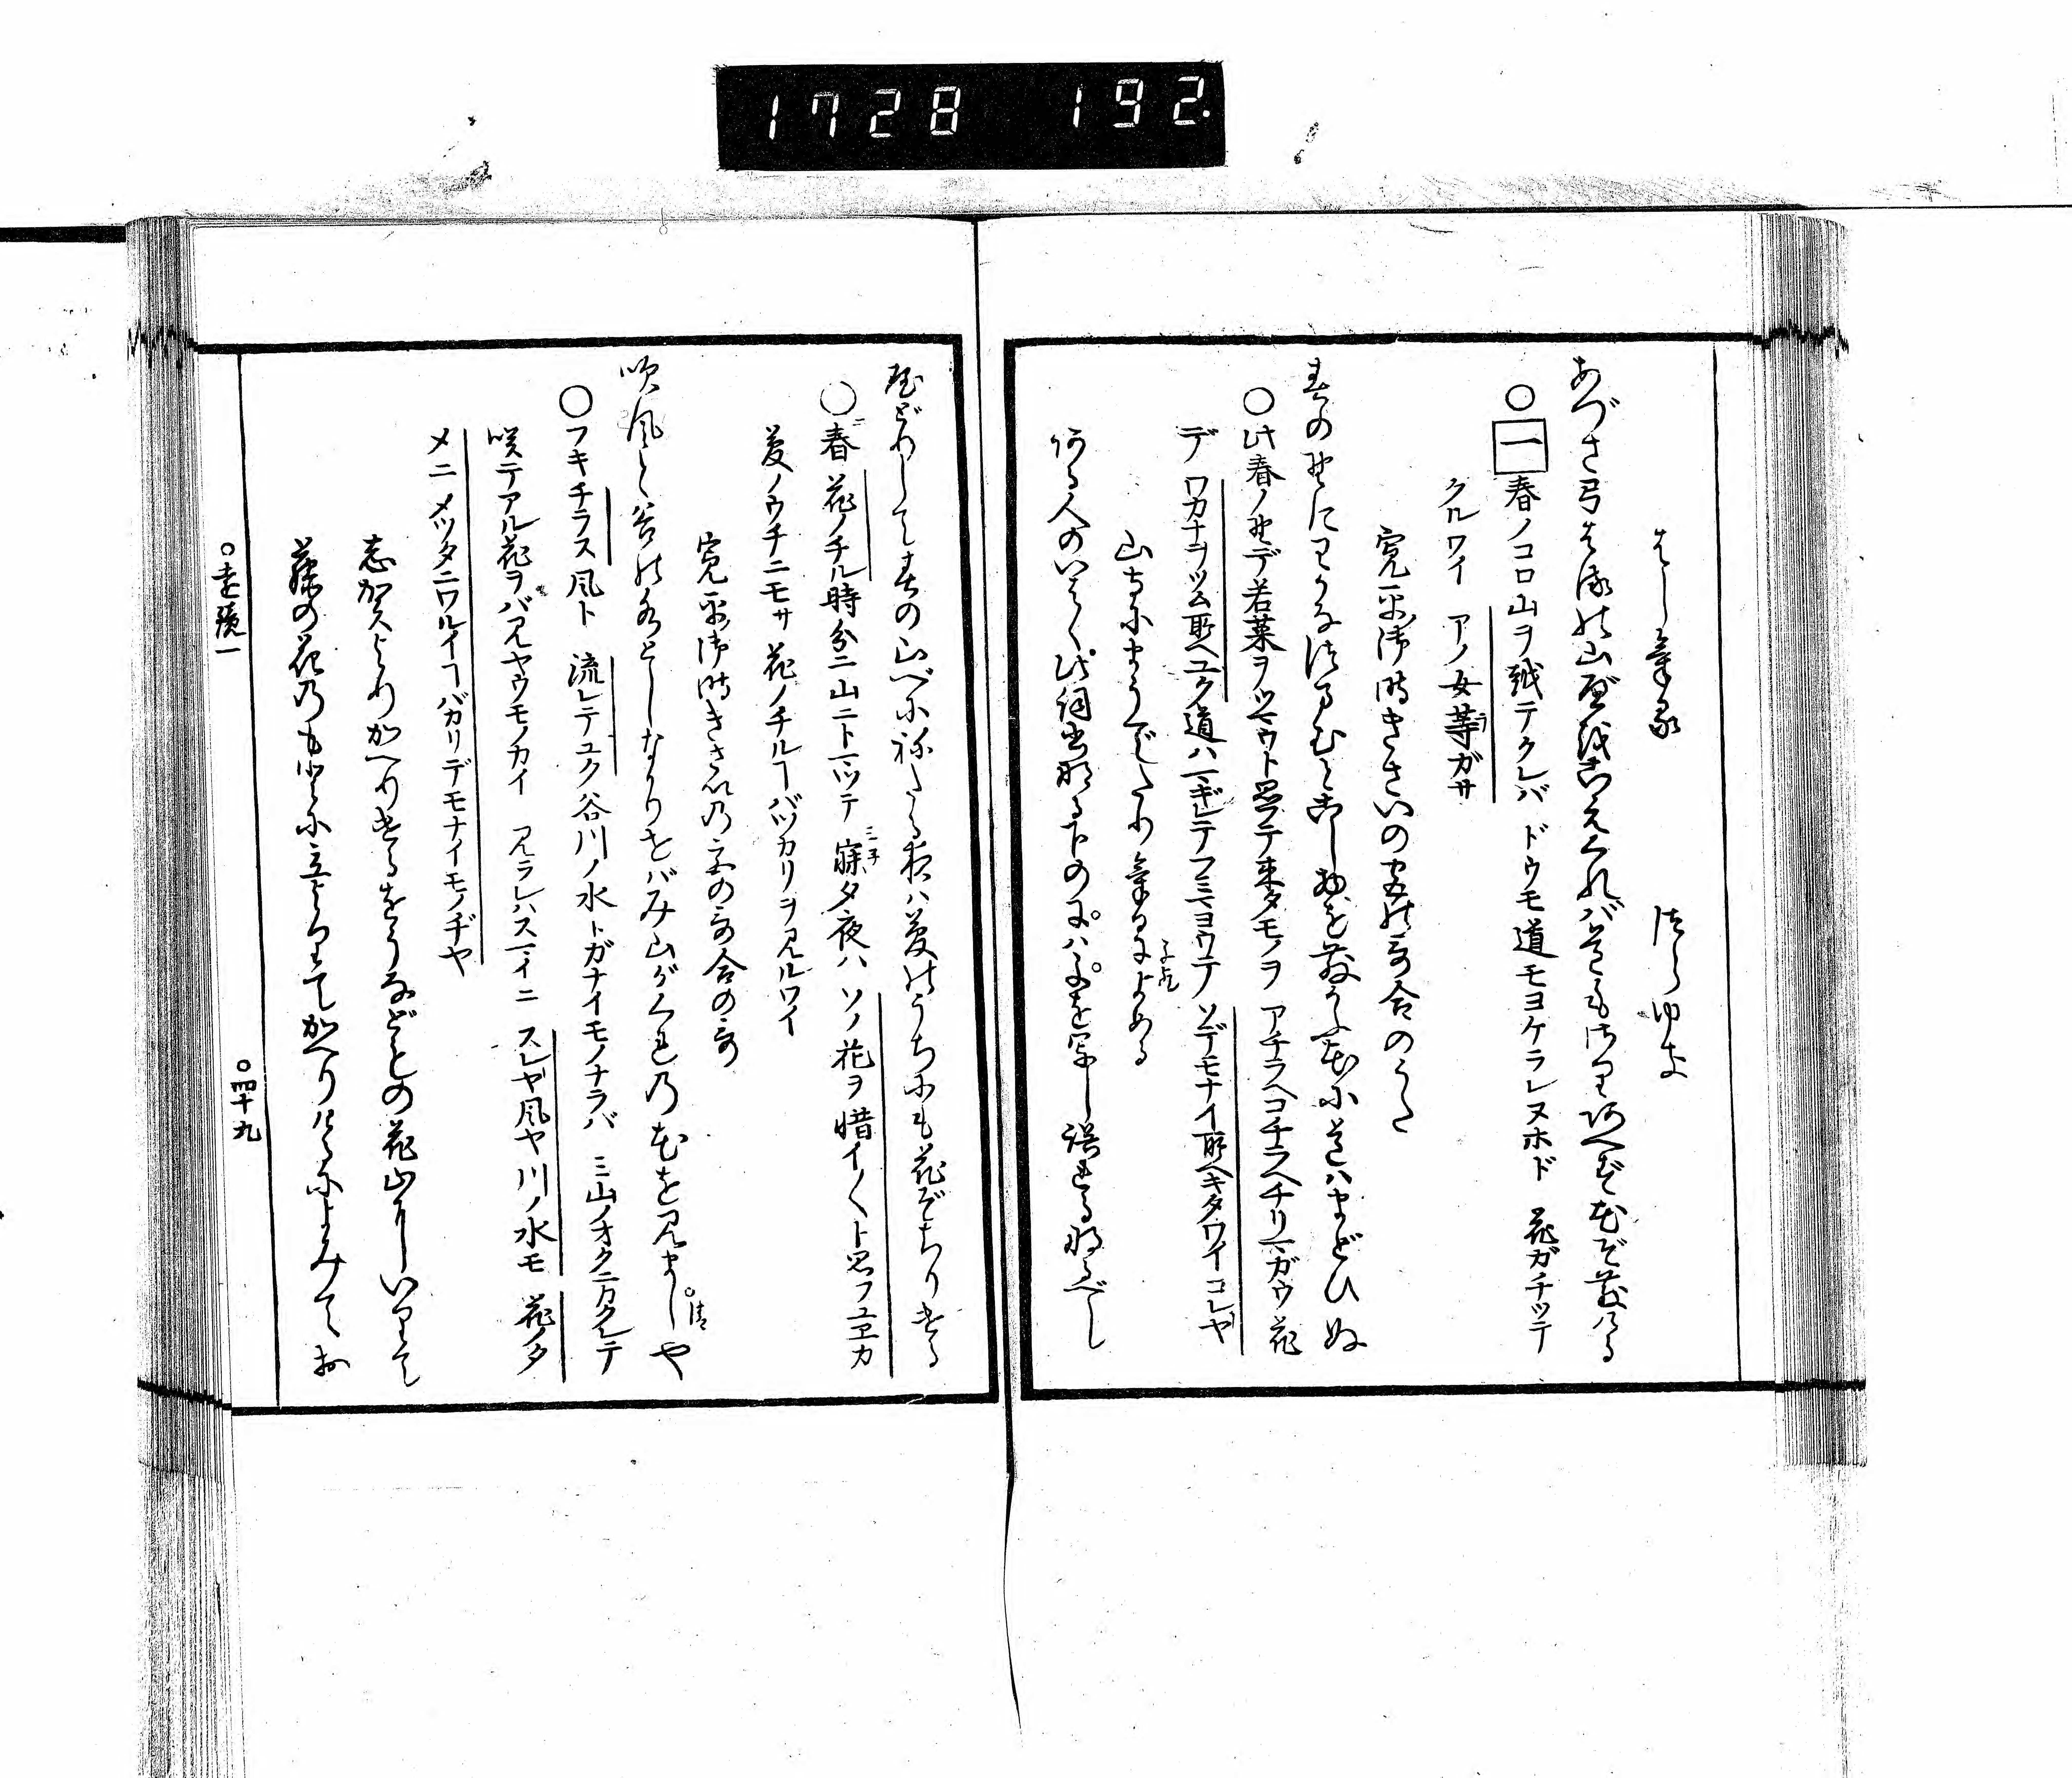 1728 192.
はしける つらゆき
あづさ弓はるの山辺をこえくれば道もさりあへず花ぞ散ける
○一春ノコロ山ヲ越テクレバ ドウモ道モヨケラレヌホド 花ガチツテ
クルワイ アノ女等ガサ
寛平御時きさいの宮の哥合のうた
春の野にわかなつまむとこし物を散かふ花に道はまどひぬ
○此春ノ野デ若菜ヲツマウト思テ来タモノヲ アチラヘコチラヘチリマガウ花
デ ワカナヲツム所ヘユク道ハマギレテフミマヨウテ ソデモナイ所ヘキタワイコレヤ
山寺にまうでたりけるによめる
ある人のいはく此詞
やどりして春の山べにねたる夜は夢のうちにも花ぞちりける
○春花ノチル時分ニ山ニトマツテ 寐タ夜ハ ソノ花ヲ惜イ〱ト思フユヱカ
夢ノウチニモサ 花ノチルヿバツカリヲ見ルワイ
寛平御時きさいの宮の哥合の哥
吹風と谷の水としなかりせばみ山がくれの花を見ましや
○フキチラス風ト 流レテユク谷川ノ水トガナイモノナラバ ミ山ノオクニカクレテ
咲テアル花ヲバ見ヤウモノカイ 見ラレハスマイニ スレヤ風ヤ川ノ水モ 花ノタ
メニ メツタニワルイヿバカリデモナイモノヂヤ
志賀よりかへりけるをうなどもの花山にいりて
藤の花のもとに立よりてかへりけるによみてお
○遠鏡一 ○四十九